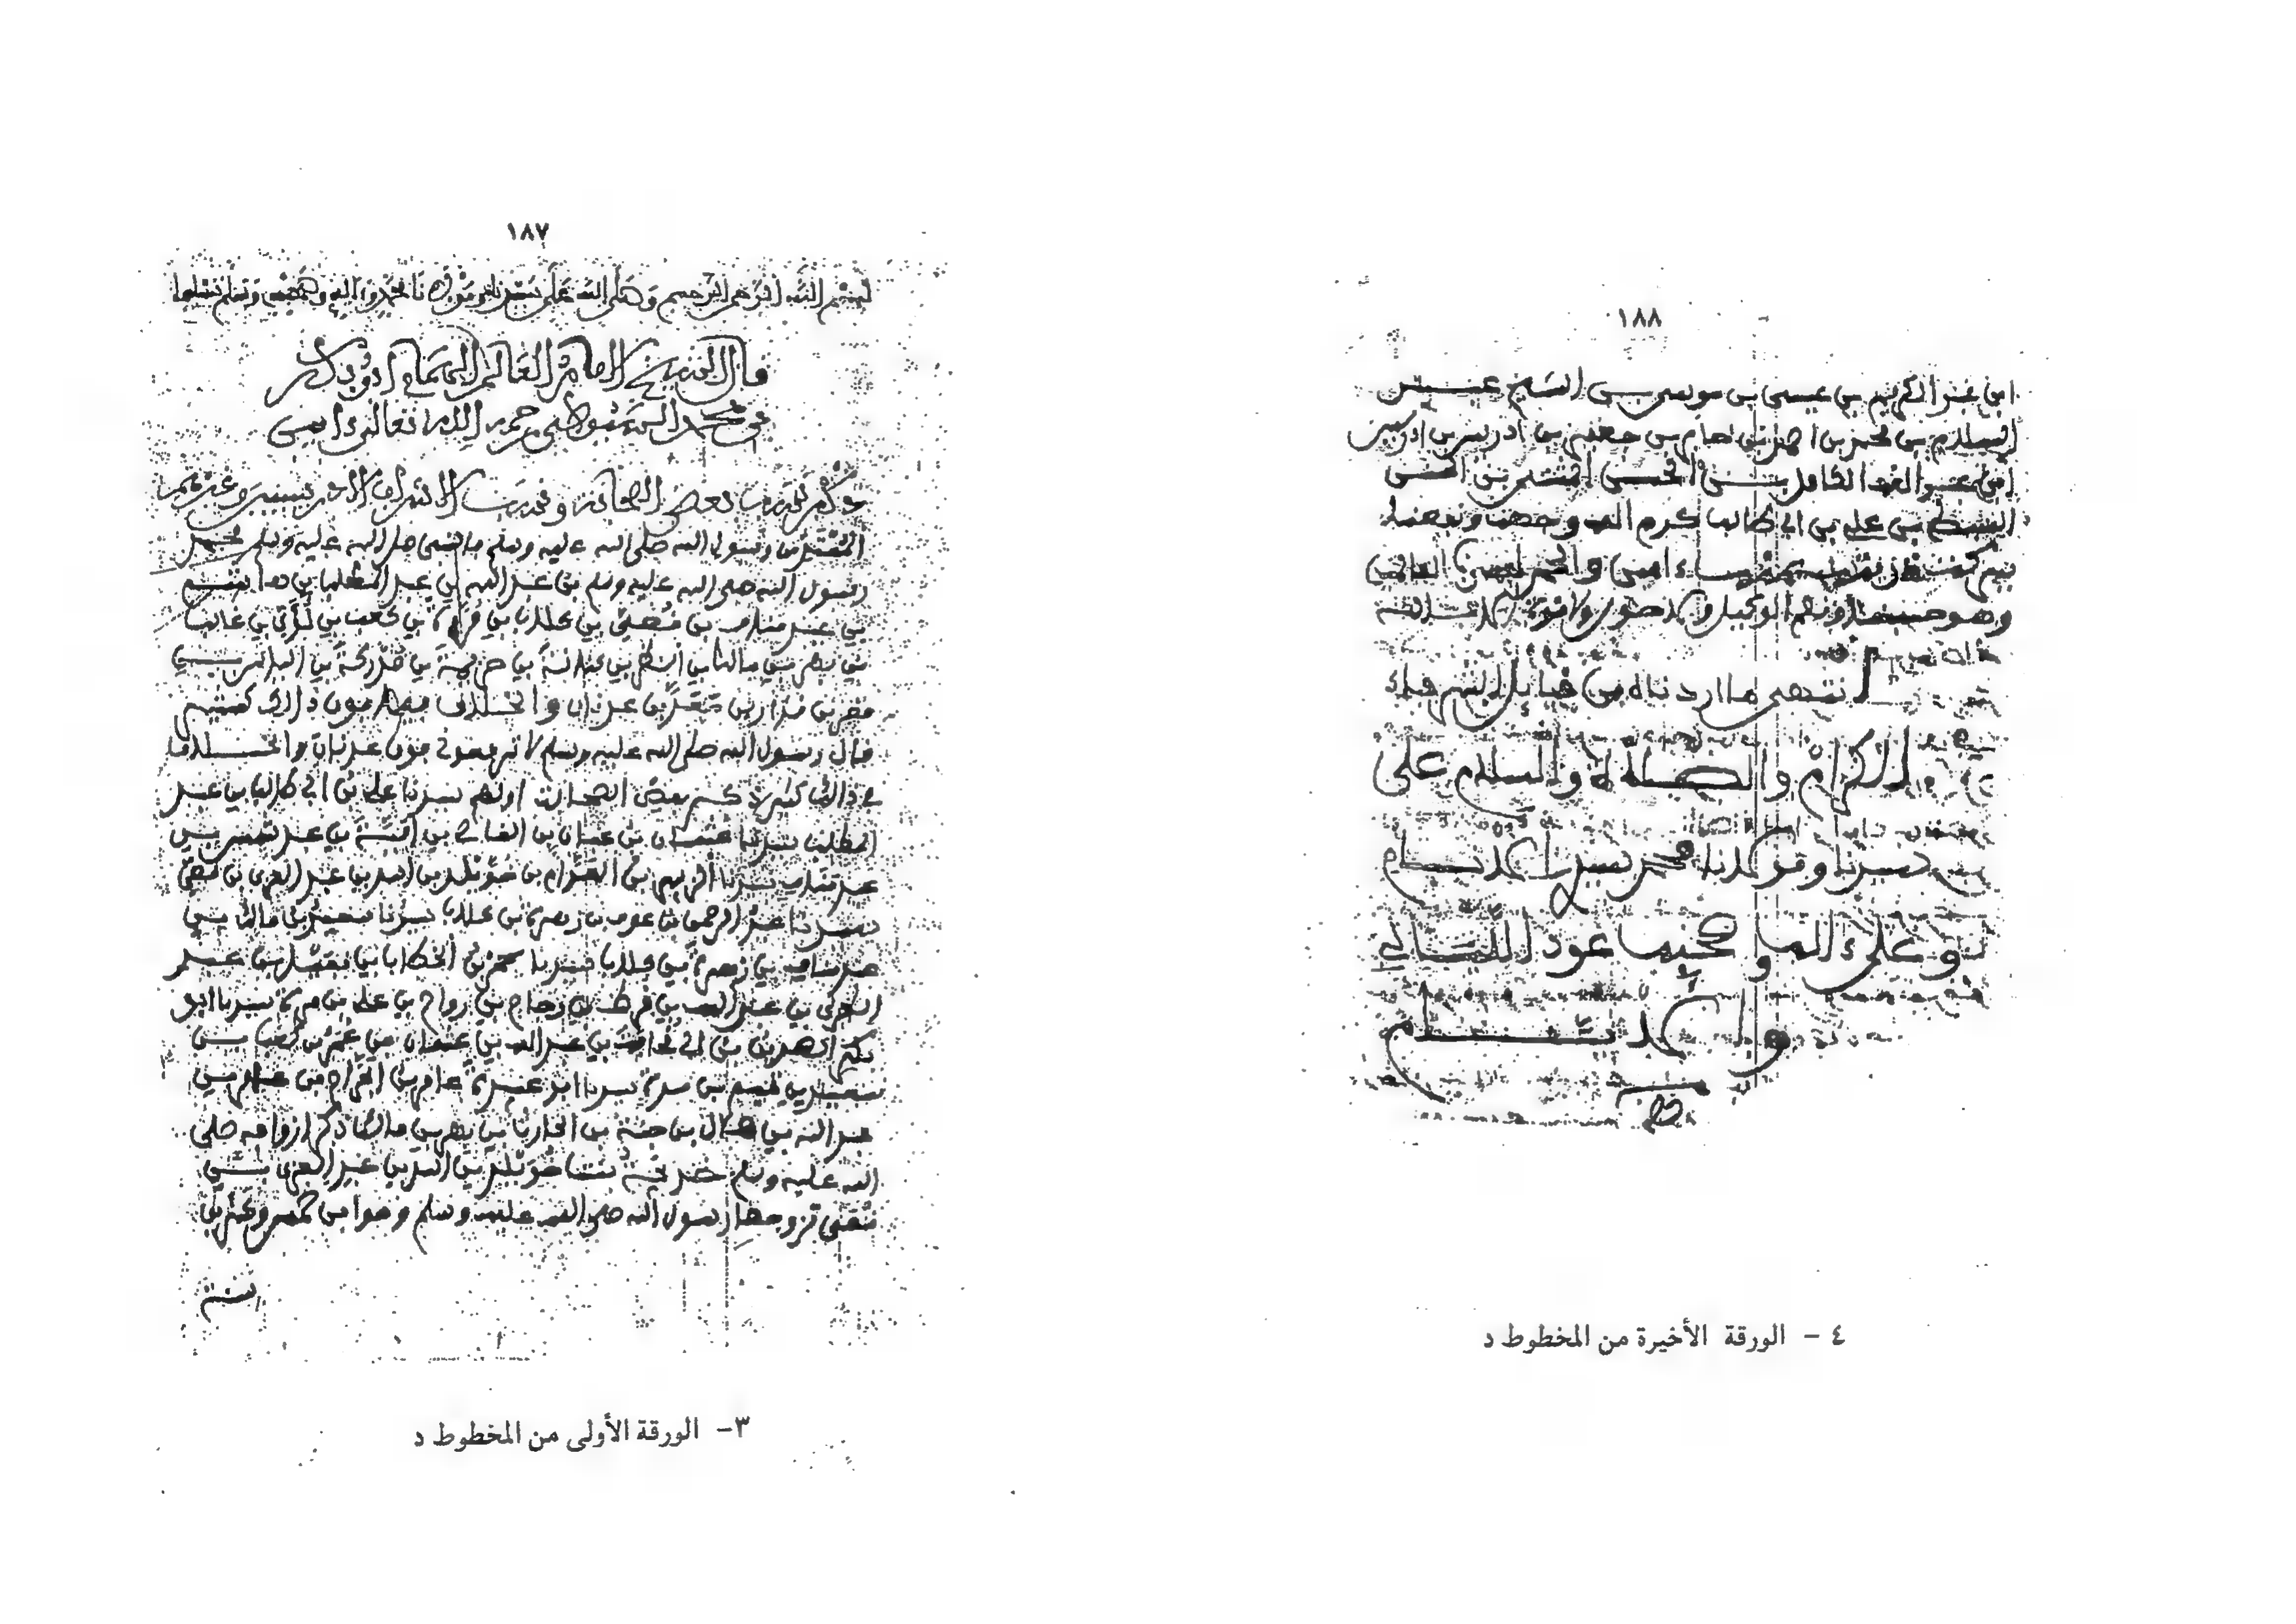 ١٨٧
بسم الله الرحمن الرحيم وصلى الله على سيدنا ومولانا محمد وءاله وصحبه وسلم تسليما
قال الشيخ الامام العالم الهمام ابو بكر
بن محمد السيوطي رحمه الله تعالى ءامين
ذكر نسب بعض الصحابة ونسب الاشراف الادريسيين وغيرهم
رسول الله صلى الله عليه وسلم محمد
رسول الله صلى الله عليه وسلم بن عبد الله بن عبد المطلب بن هاشم
بن عبد مناف بن قصي بن كلاب بن مرة بن كعب بن لؤي بن غالب
بن فهر بن مالك بن النضر بن كنانة بن خزيمة بن مدركة بن الياس بن
مضر بن نزار بن معد بن عدنان والخلاف فيما فوق ذالك كثير
قال رسول الله صلى الله عليه وسلم لا ترفعوني فوق عدنان والخلاف
في ذالك كثير ذكر بعض الصحابة اولهم سيدنا علي بن أبي طالب بن عبد
المطلب سيدنا عثمان بن عفان بن العاصي بن أمية بن عبد شمس بن
عبد مناف سيدنا الزبير بن العوام بن خويلد بن اسد بن عبد العزى بن قصي
سيدنا عبد الرحمن بن عوف بن زهرة بن كلاب سيدنا سعيد بن مالك بن
عبد مناف بن زهرة بن كلاب سيدنا عمر بن الخطاب بن نفيل بن عبد
العزى بن عبد الله بن قرط بن رزاح بن علي بن مرة سيدنا ابو
بكر الصديق بن أبي قحافة بن عبد الله بن عثمان بن عمر بن كعب بن
سعيد بن تميم بن مرة سيدنا ابو عبيدة عامر بن الجراح بن عامر بن
عبد الله بن هلال بن ضبة بن الحارث بن فهر بن مالك ذكر ازواجه صلى
الله عليه وسلم خديجة بنت خويلد بن اسد بن عبد العزى بن
قصي تزوجها رسول الله صلى الله عليه وسلم وهو ابن خمس وعشرين
سنة
٣- الورقة الأولى من المخطوط د
١٨٨
ابن عبد الكريم بن عيسى بن موسى بن الشيخ عبد
السلام بن محمد بن احمد بن امام بن جعفر بن ادريس بن ادريس
ابن عبد الله الكامل بن الحسن المثنى بن الحسن
السبط بن علي بن ابي طالب كرم الله وجهه ونفعنا
ءامين والحمد لله رب العالمين
وهو حسبنا ونعم الوكيل ولا حول ولا قوة الا بالله
انتهى ما اردناه من قبايل الشرفاء
الاكرام والصلاة والسلام على
سيدنا ومولانا محمد سيد الانام
وعلى ءاله وصحبه عود الليالي
والايام
صح
٤ - الورقة الأخيرة من المخطوط د